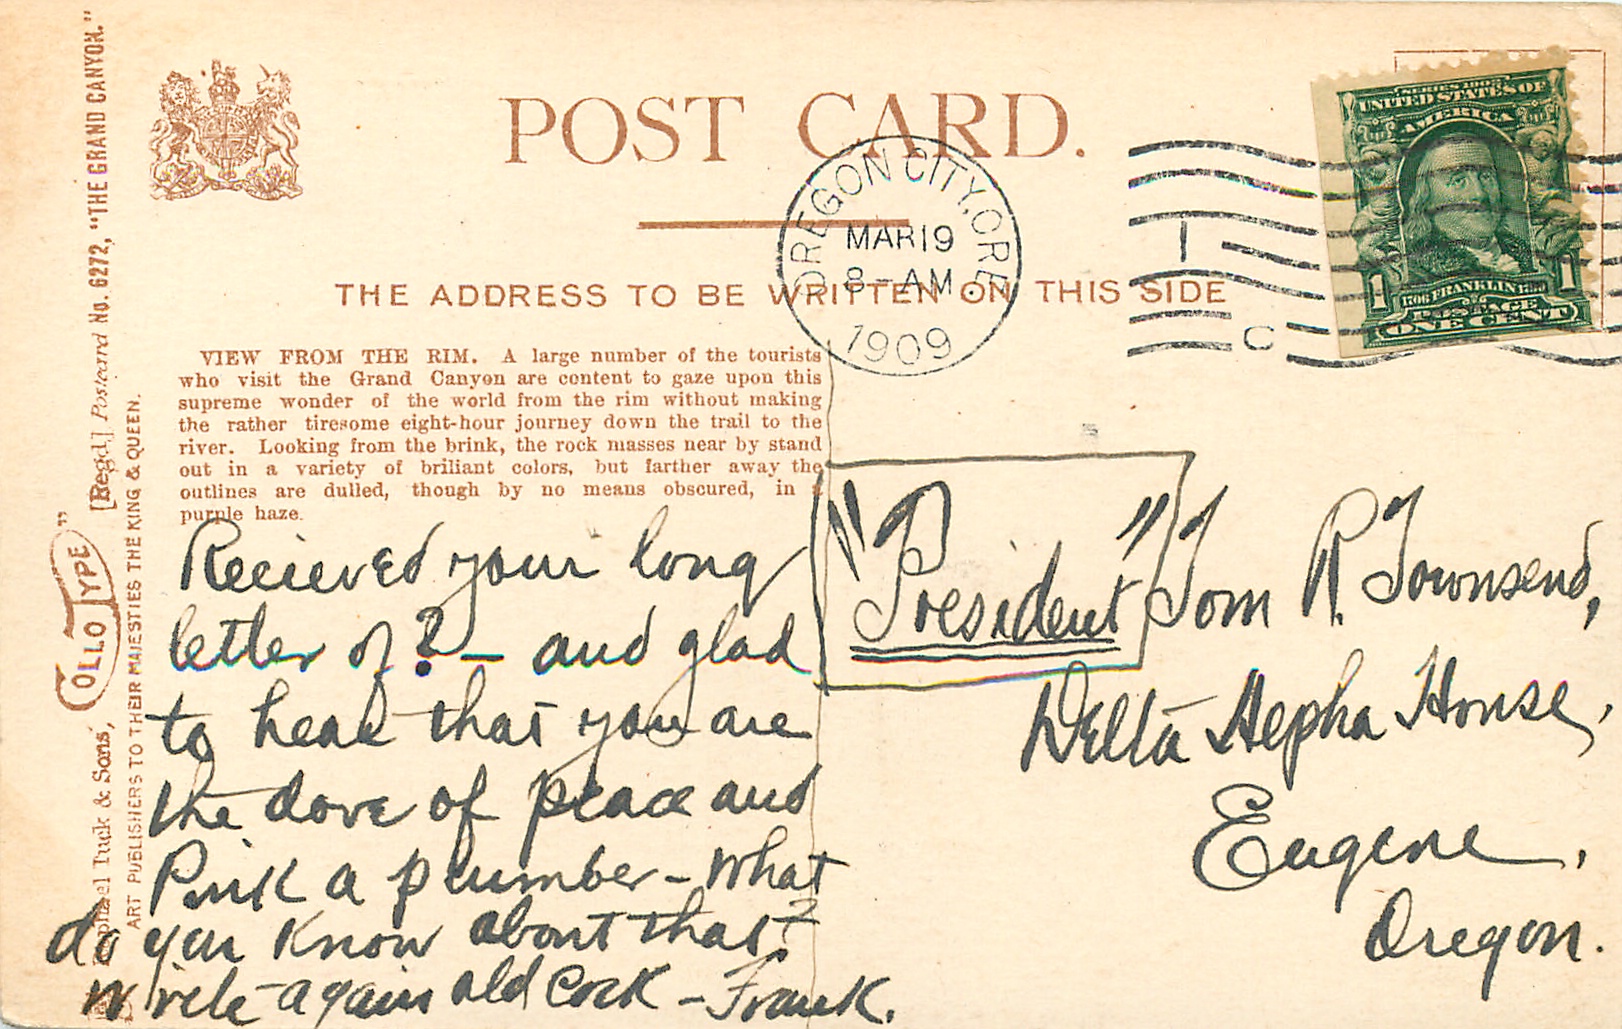 POST CARD.
THE ADDRESS TO BE WRITTEN ON THIS SIDE
OREGON CITY, ORE.
MAR 19
8 - AM
1909
1
C
SERIES 1902
UNITED STATES OF
AMERICA
1706 FRANKLIN 1790
POSTAGE
1 ONE CENT 1
VIEW FROM THE RIM. A large number of the tourists
who visit the Grand Canyon are content to gaze upon this
supreme wonder of the world from the rim without making
the rather tiresome eight-hour journey down the trail to the
river. Looking from the brink, the rock masses near by stand
out in a variety of briliant colors, but farther away the
outlines are dulled, though by no means obscured, in a
purple haze.
Recieved your long
letter of ? — and glad
to hear that you are
the dove of peace and
Pink a plumber — What
do you know about that?
Write again old Cock — Frank.
"President" Tom R. Townsend,
Delta Alpha House,
Eugene,
Oregon.
Raphael Tuck & Sons' "COLLOTYPE" [Regd.] Postcard No. 6272, "THE GRAND CANYON."
ART PUBLISHERS TO THEIR MAJESTIES THE KING & QUEEN.